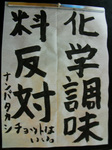 化学調味
料反対
チョットは
いいよ
ナンバタカシ